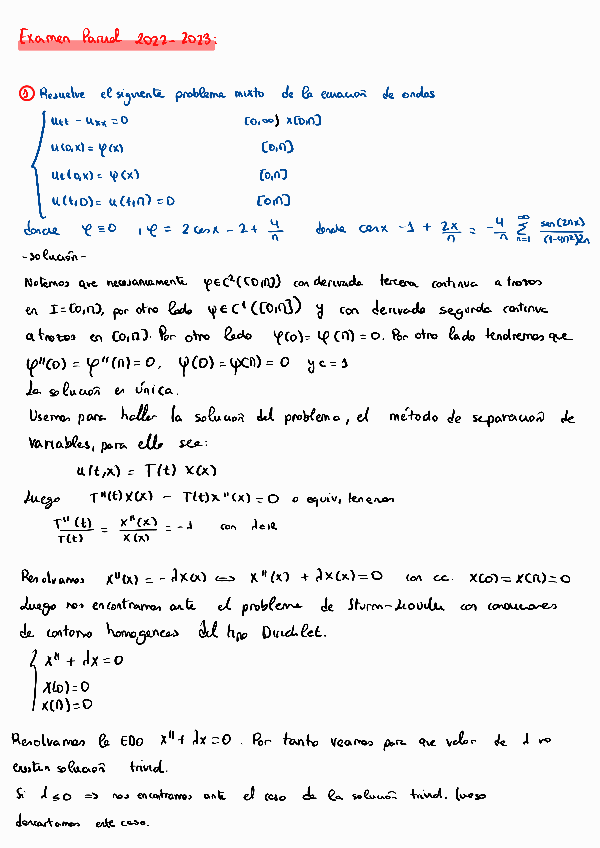 Examen Parcial 2022-2023:
① Resuelve el siguiente problema mixto de la ecuación de ondas
utt - uxx = 0 [0,∞) x [0,π]
u(0,x) = φ(x) [0,π]
ut(0,x) = ψ(x) [0,π]
u(t,0) = u(t,π) = 0 [0,π]
donde φ ≡ 0 , ψ = 2 cos x - 2 + 4/π donde cos x - 1 + 2x/π = -4/π ∑ n=1 ∞ sen(2nx)/(1-4n²)2n
- solución -
Notemos que necesariamente φ ∈ C²([0,π]) con derivada tercera continua a trozos
en I = [0,π], por otro lado ψ ∈ C¹([0,π]) y con derivada segunda continua
a trozos en [0,π]. Por otro lado φ(0) = φ(π) = 0. Por otro lado tendremos que
φ''(0) = φ''(π) = 0, ψ(0) = ψ(π) = 0 y c = 1
La solución es única.
Usemos para hallar la solución del problema, el método de separación de
variables, para ello sea:
u(t,x) = T(t) X(x)
Luego T''(t)X(x) - T(t)X''(x) = 0 o equiv, tenemos
T''(t)/T(t) = X''(x)/X(x) = -λ con λ∈ℝ
Resolvamos X''(x) = -λX(x) ⟺ X''(x) + λX(x) = 0 con cc. X(0) = X(π) = 0
Luego nos encontramos ante el problema de Sturm-Liouville con condiciones
de contorno homogéneas del tipo Dirichlet.
X'' + λX = 0
X(0) = 0
X(π) = 0
Resolvamos la EDO X'' + λX = 0. Por tanto veamos para que valor de λ no
existen solución trivial.
Si λ ≤ 0 => nos encontramos ante el caso de la solución trivial. Luego
descartamos este caso.